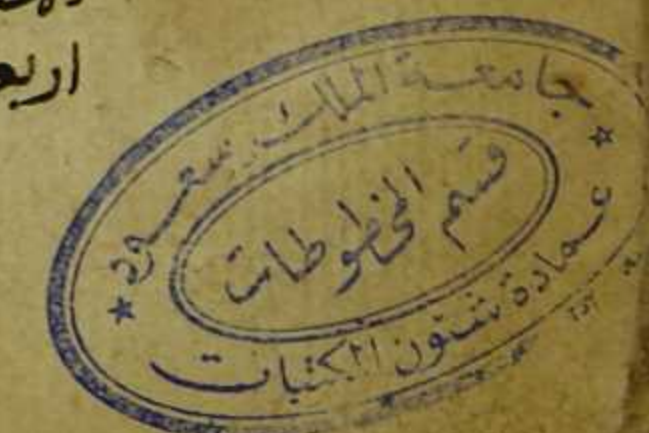 اربع
جامعة الملك سعود
قسم المخطوطات
عمادة شئون المكتبات